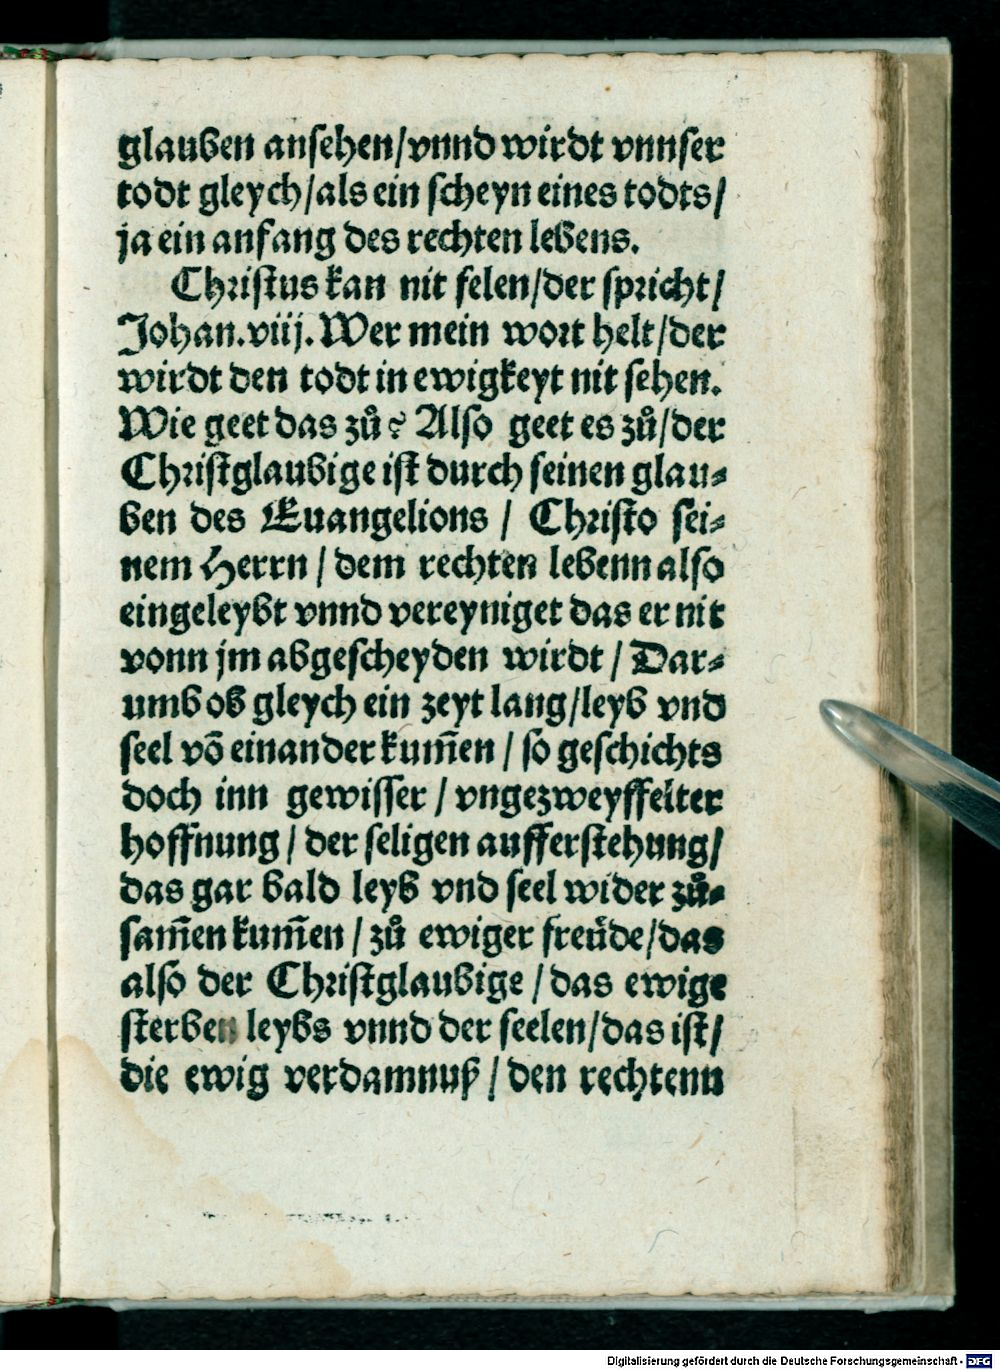 glauben ansehen/vnnd wirdt vnnser
todt gleych/als ein scheyn eines todts/
ja ein anfang des rechten lebens.
Christus kan nit felen/der spricht/
Johan.viij. Wer mein wort helt/der
wirdt den todt in ewigkeyt nit sehen.
Wie geet das zů? Also geet es zů/der
Christglaubige ist durch seinen glau-
ben des Euangelions / Christo sei-
nem Herrn / dem rechten lebenn also
eingeleybt vnnd vereyniget das er nit
vonn jm abgescheyden wirdt / Dar-
umb ob gleych ein zeyt lang/leyb vnd
seel võ einander kum̃en / so geschichts
doch inn gewisser / vngezweyffelter
hoffnung / der seligen aufferstehung/
das gar bald leyb vnd seel wider zů-
sam̃en kum̃en / zů ewiger freüde/das
also der Christglaubige / das ewige
sterben leybs vnnd der seelen/das ist/
die ewig verdamnuß / den rechtenn
Digitalisierung gefördert durch die Deutsche Forschungsgemeinschaft - DFG